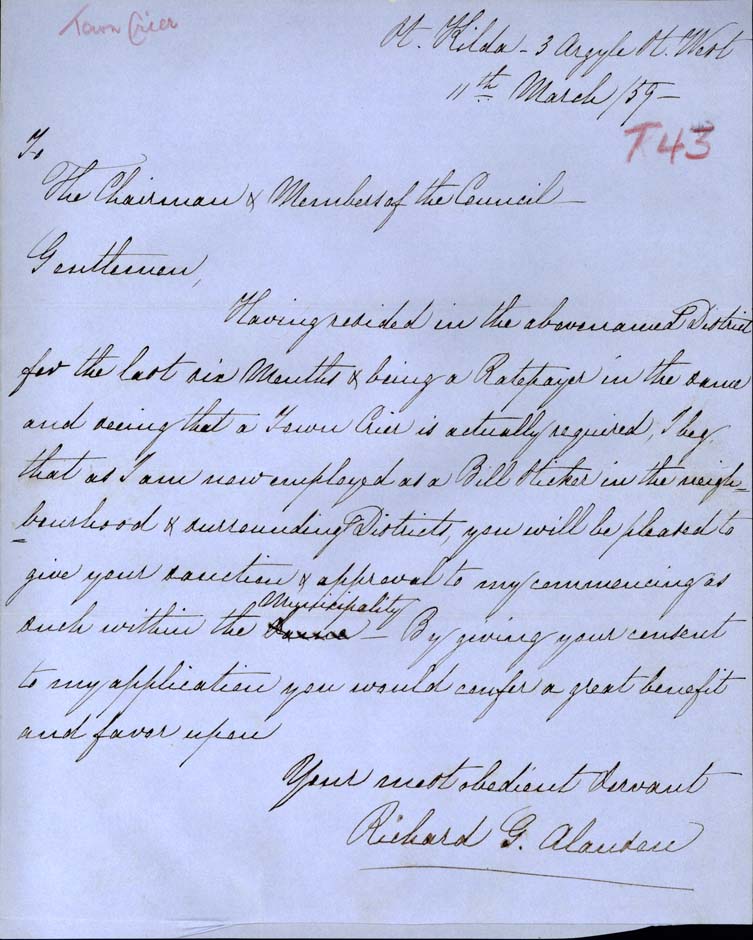 Town Crier
St. Kilda - 3 Argyle St. West
11th March /59 -
T 43
To
The Chairman & Members of the Council -
Gentlemen,
Having resided in the abovenamed District
for the last six Months & being a Ratepayer in the same
and seeing that a Town Crier is actually required, I beg
that as I am now employed as a Bill Sticker in the neigh=
=bourhood & surrounding Districts, you will be pleased to
give your sanction & approval to my commencing as
Municipality
such within the same - By giving your consent
to my application you would confer a great benefit
and favor upon
Your most obedient Servant
Richard G.